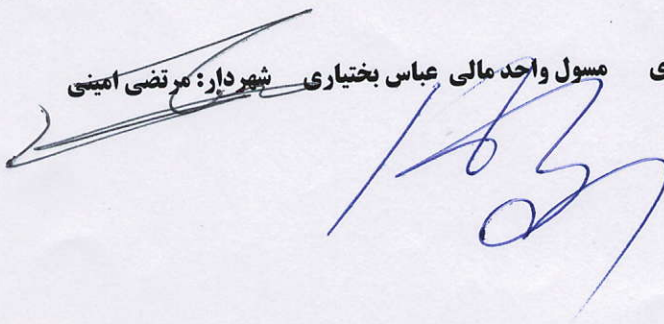 ی مسول واحد مالی عباس بختیاری شهردار: مرتضی امینی